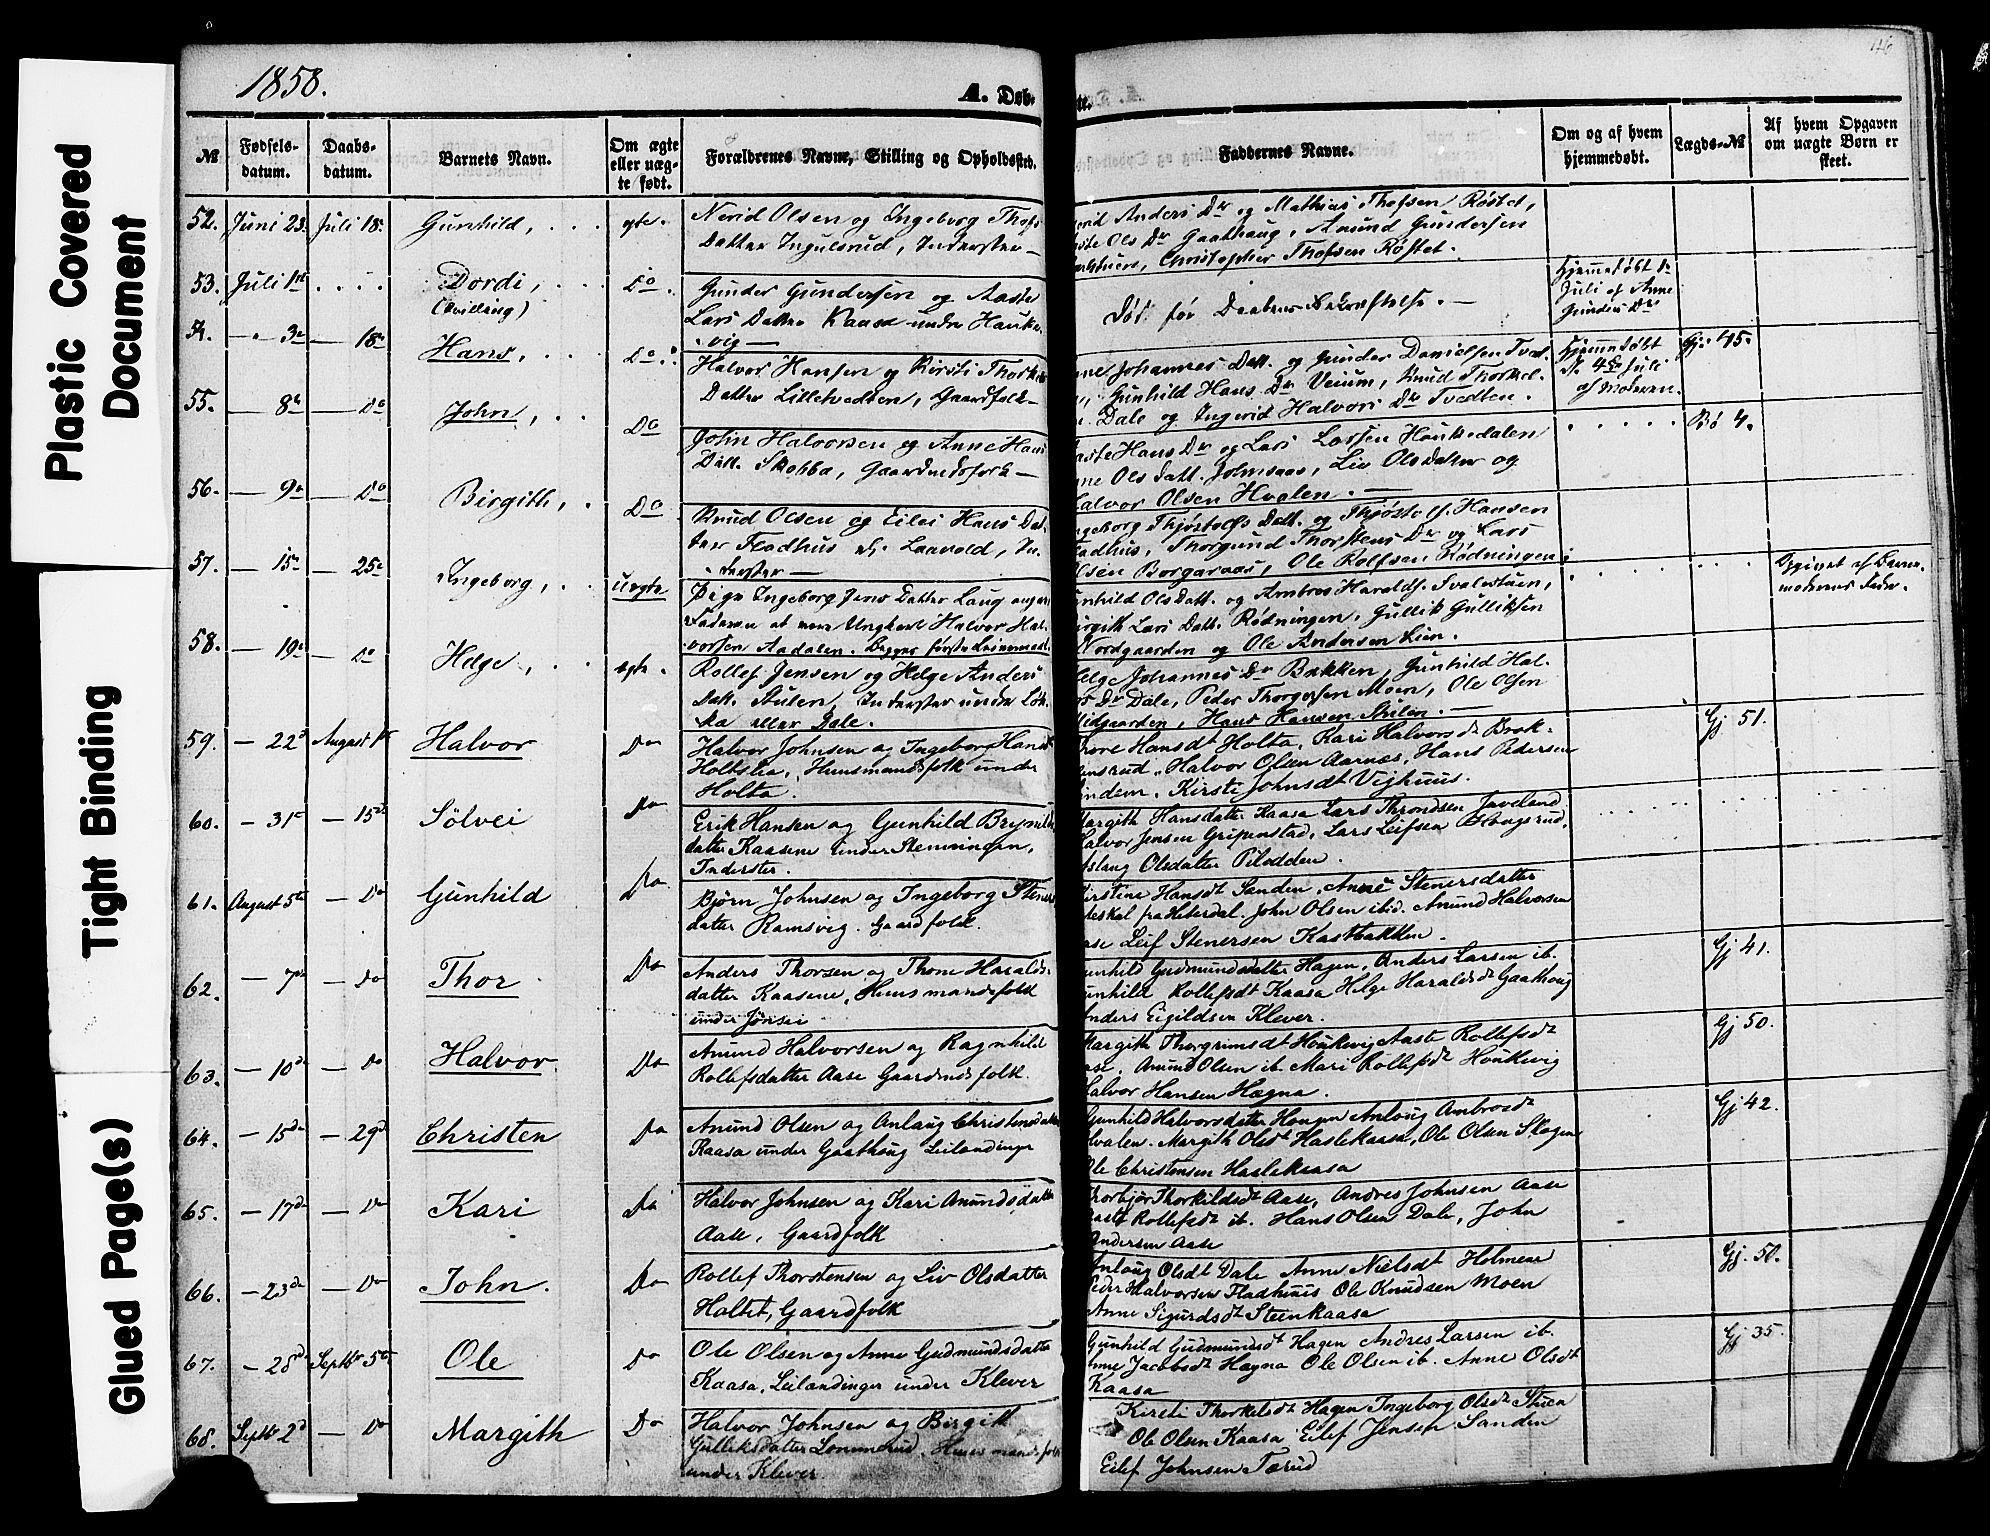 Plastic Covered
Document
Tight Binding
Glued Page(s)
1858.
A. Døb-
te.
116
№
Fødsels-
datum.
Daabs-
datum.
Barnets Navn.
Om ægte
eller uæg-
te født.
Forældrenes Navne, Stilling og Opholdssted.
Faddernes Navne.
Om og af hvem
hjemmedøbt.
Lægds-№
Af hvem Opgaven
om uægte Børn er
skeet.
52. Juni 23. Juli 18. Gunhild, . . . egte.
Nerid Olsen og Ingeborg Thofs
Datter Ingulsrud, Inderster —
Anders Dr og Mathias Thofsen Røstet,
Ols Dr Gaathaug, Amund Gundersen
Christopher Thofsen Røstet.
53. Juli 1ste . . . . Dordi, . . . Do .
(Tvilling)
Gunder Gundersen og Aaste
Lars Datter Kaasa under Houke-
vig —
Død før Daabens Bekræftelse. —
Hjemmedøbt
Juli af Anne
Gunders Dr
54. — " 3de — 18de Hans, . . Do .
Halvor Hansen og Kirsti Thorkels
Datter Lilletvedten, Gaardfolk —
Johannes Datt. og Gunder Danielsen Tved-
Gunhild Hans Dr Veium, Knud Thorkel-
Dale og Ingerid Halvors Dr Tvedten.
Hjemmedøbt
d. 4de Juli
af Moderen.
Gj. 45.
55. — 8de — Do John, . . Do
John Halvorsen og Anne Hans
Datt. Skobba, Gaardmandsfolk —
Hans Dr og Lars Larsen Houksdalen
Ols Datt. Johnsaas, Liv Ols Datter og
Halvor Olsen Hvalen. —
. . . . . Bø 4.
56. — 9de — Do Birgith, . Do
Knud Olsen og Eilei Hans Dat-
ter Fladhus e. Laavold, In-
derster —
Ingeborg Thjøstolfs Datt. og Thjøstolf Hansen
Fladhus, Thorgund Thorstens Dr og Lars
Olsen Borgaraas, Ole Rolfsen Rødningen.
57. — 15de — 25de Ingeborg, . . Uægte
Pige Ingeborg Jens Datter Laug angiver
Faderen at være Ungkarl Halvor Hal-
vorsen Aadalen. Begges første Leiermaal.
Gunhild Ols Datt. og Ambros Haralds. Svalestuen,
Birgith Lars Datt. Rødningen, Gullik Gulliksen
Nordgaarden og Ole Andersen Lien.
Opgivet af Barne-
moderens Fader.
58. — 19de — Do Helge, . . egte
Rollef Jensen og Helge Anders
Datt. Stulen, Inderster under Løk-
ka eller Dale.
Helge Johannes Dr Bakken, Gunhild Hal-
vors Dr Dale, Peder Thorgersen Moen, Ole Olsen
Midgaarden, Hans Hansen Stulen. —
59. — 22d August 1st Halvor Do
Halvor Johnsen og Ingeborg Hansd
Holtslia, Huusmandsfolk under
Holta.
Thore Hansdt Holta, Kari Halvorsdt Brok-
Halvor Olsen Aarnes, Hans Pedersen
Lindem, Kirsti Johnsdt Vighuus.
Gj 51.
60. — 31te — 15de Sølvei Do
Erik Hansen og Gunhild Brynilds
datter Kaasene under Stenningen,
Inderster.
Margith Hansdatter Kaasa Lars Throndsen Javeland
Halvor Jensen Gripenstad, Lars Leifsen Haugsrud,
Aslaug Olsdatter Pilodden.
61. August 5te — Do Gunhild Do
Bjørn Johnsen og Ingeborg Steners
datter Ramsvig. Gaardfolk.
Kirstine Hansdt Sanden, Anne Stenersdatter
fra Hiterdal. John Olsen ibid. Anund Halvorsen
Aase Leif Stenersen Kastbakken.
62. — 7de — Do Thor Do
Anders Thorsen og Thone Haralds-
datter Kaasene, Huusmandsfolk
under Jønsei
Gunhild Gudmundsdatter Hagen, Anders Larsen ib.
Gunhild Rollefsdt Kaasa Helge Haraldsdt Gaathoug
Anders Eigildsen Klever.
Gj 41.
63. — 10de — Do Halvor Do
Anund Halvorsen og Ragnhild
Rollefsdatter Aase Gaardmdsfolk.
Margith Thorgrimsdt Houkvig Aaste Rollefsdt
Aase, Anund Olsen ib. Mari Rollefsdt Houkvig
Halvor Hansen Hægna.
Gj 50.
64. — 15de — 29d Christen Do
Anund Olsen og Anlaug Christensdatter
Kaasa under Gaathoug Leilændinge
Gunhild Halvorsdatter Hougen Anloug Ambrosdt
Hvalen. Margith Olsdt Haslekaasa, Ole Olsen Skogen
Ole Christensen Haslekaasa
Gj 42.
65. — 17de — Do Kari Do
Halvor Johnsen og Kari Anundsdatter
Aase, Gaardfolk
Thorbjør Thorkildsdt Aase, Andres Johnsen Aase
Aaste Rollefsdt ib. Hans Olsen Dale, John
Andersen Aase
66. — 23de — Do John. Do
Rollef Thorstensen og Liv Olsdatter
Holtet, Gaardfolk
Anlaug Olsdt Dale Anne Nielsdt Holmene
Peder Halvorsen Fladhuus Ole Knudsen Moen
Anne Sigurdsdt Steenkaasa
Gj. 50.
67. — 28d Septbr 5te Ole Do
Ole Olsen og Anne Gudmundsdatter
Kaasa, Leilændinger under Klever
Gunhild Gudmundsdt Hagen Andres Larsen ib.
Anne Jacobsdt Hægna Ole Olsen ib. Anne Olsdt
Kaasa
Gj 35.
68. Septbr 2d — Do Margith Do
Halvor Johnsen og Birgith
Gulleksdatter Lonumrud, Huusmandsfolk
under Klever
Kirsti Thorkilsdt Hagen Ingeborg Olsdt Stuen
Ole Olsen Kaasa Eilef Jensen Sanden
Eilef Johnsen Tærud